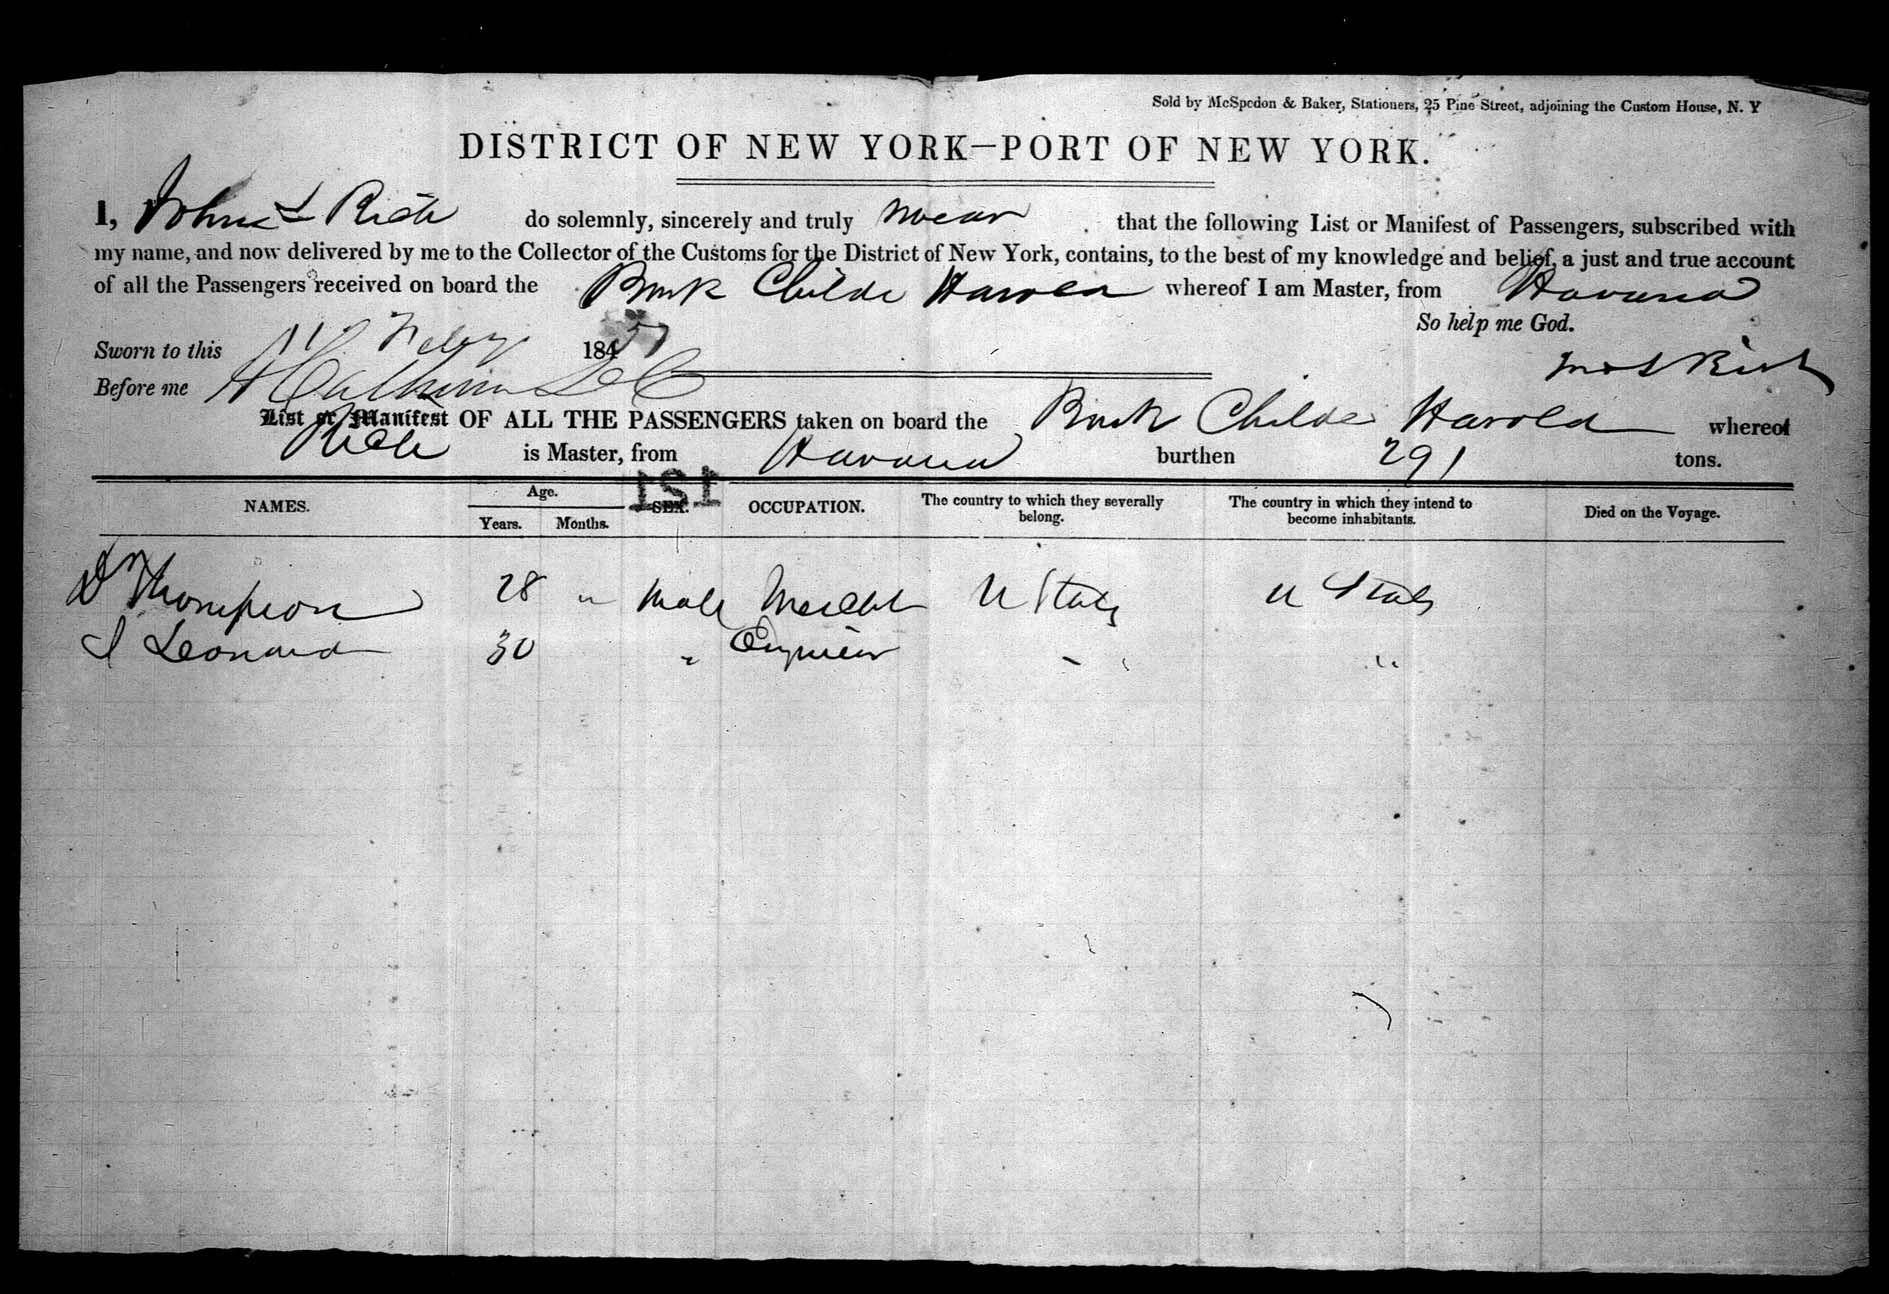 Sold by McSpedon & Baker, Stationers, 25 Pine Street, adjoining the Custom House, N. Y
DISTRICT OF NEW YORK—PORT OF NEW YORK.
I, do solemnly, sincerely and truly swear that the following List or Manifest of Passengers, subscribed with
my name, and now delivered by me to the Collector of the Customs for the District of New York, contains, to the best of my knowledge and belief, a just and true account
of all the Passengers received on board the Bark Childe Harold whereof I am Master, from Havana
So help me God.
Sworn to this 11 Feby 184
Before me
List or Manifest OF ALL THE PASSENGERS taken on board the Bark Childe Harold whereof
is Master, from Havana burthen 291 tons.
151
NAMES. Age. SEX. OCCUPATION. The country to which they severally belong. The country in which they intend to become inhabitants. Died on the Voyage.
Years. Months.
Thompson 28 " Male U States U States
Leonard 30 " Engineer " "